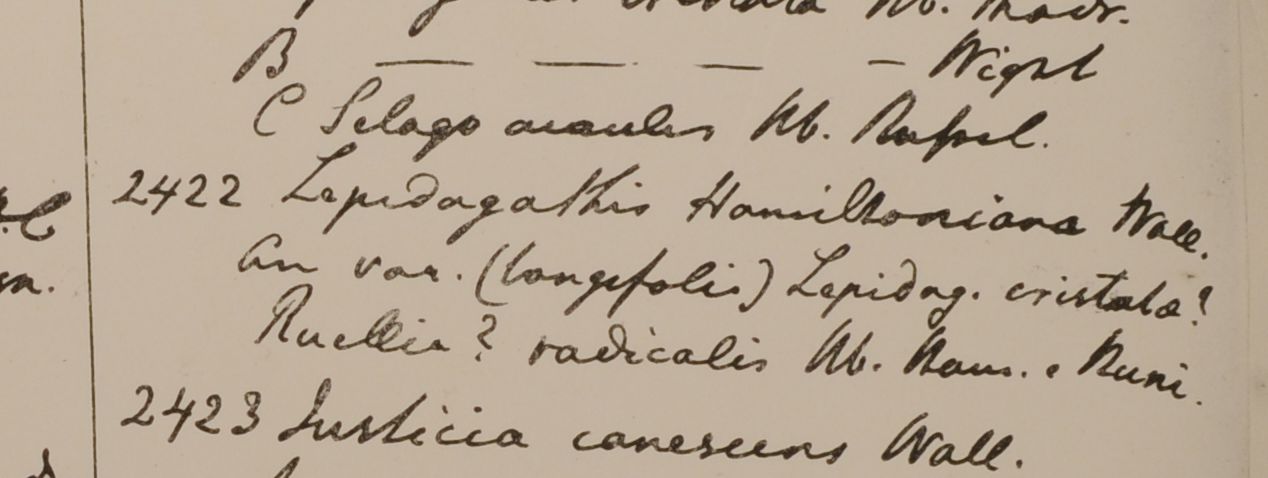 cristata Hb. Madr.
B — — — — Wight
C Selago acaulis Hb. Russel.
2422 Lepidagathis Hamiltoniana Wall.
an var. (longifolia) Lepidag. cristata?
Ruellia? radicalis Hb. Ham. e Runi.
2423 Justicia canescens Wall.